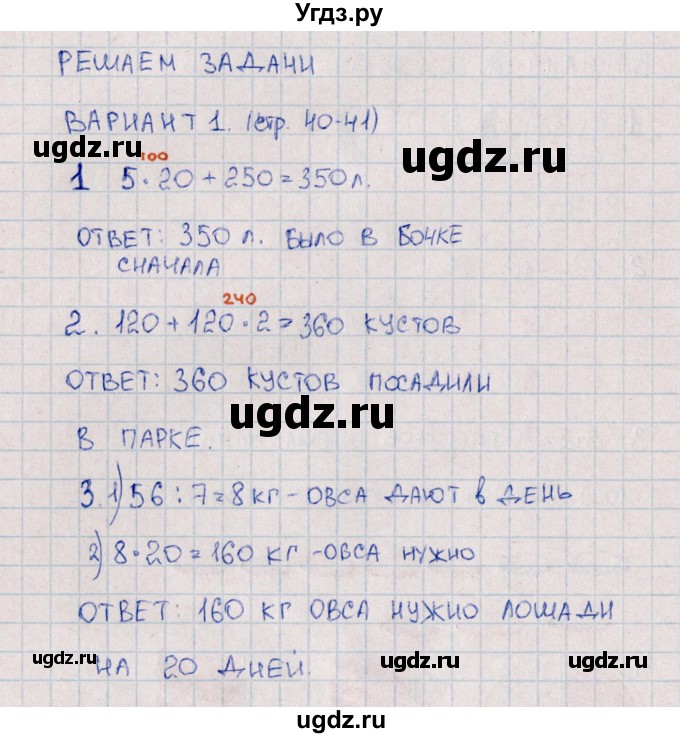 Угдз.ру
РЕШАЕМ ЗАДАЧИ
ВАРИАНТ 1. (стр. 40-41)
ugdz.ru
ugdz.ru
100
1 5·20+250=350л.
ОТВЕТ: 350 л. БЫЛО В БОЧКЕ
СНАЧАЛА
240
2. 120+120·2=360 КУСТОВ
ОТВЕТ: 360 КУСТОВ ПОСАДИЛИ
ugdz.ru
В ПАРКЕ.
3. 1) 56:7=8 КГ-ОВСА ДАЮТ В ДЕНЬ
2) 8·20=160 КГ-ОВСА НУЖНО
ОТВЕТ: 160 КГ ОВСА НУЖНО ЛОШАДИ
ugdz.ru
НА 20 ДНЕЙ.
ugdz.ru
ugdz.ru
ugdz.ru